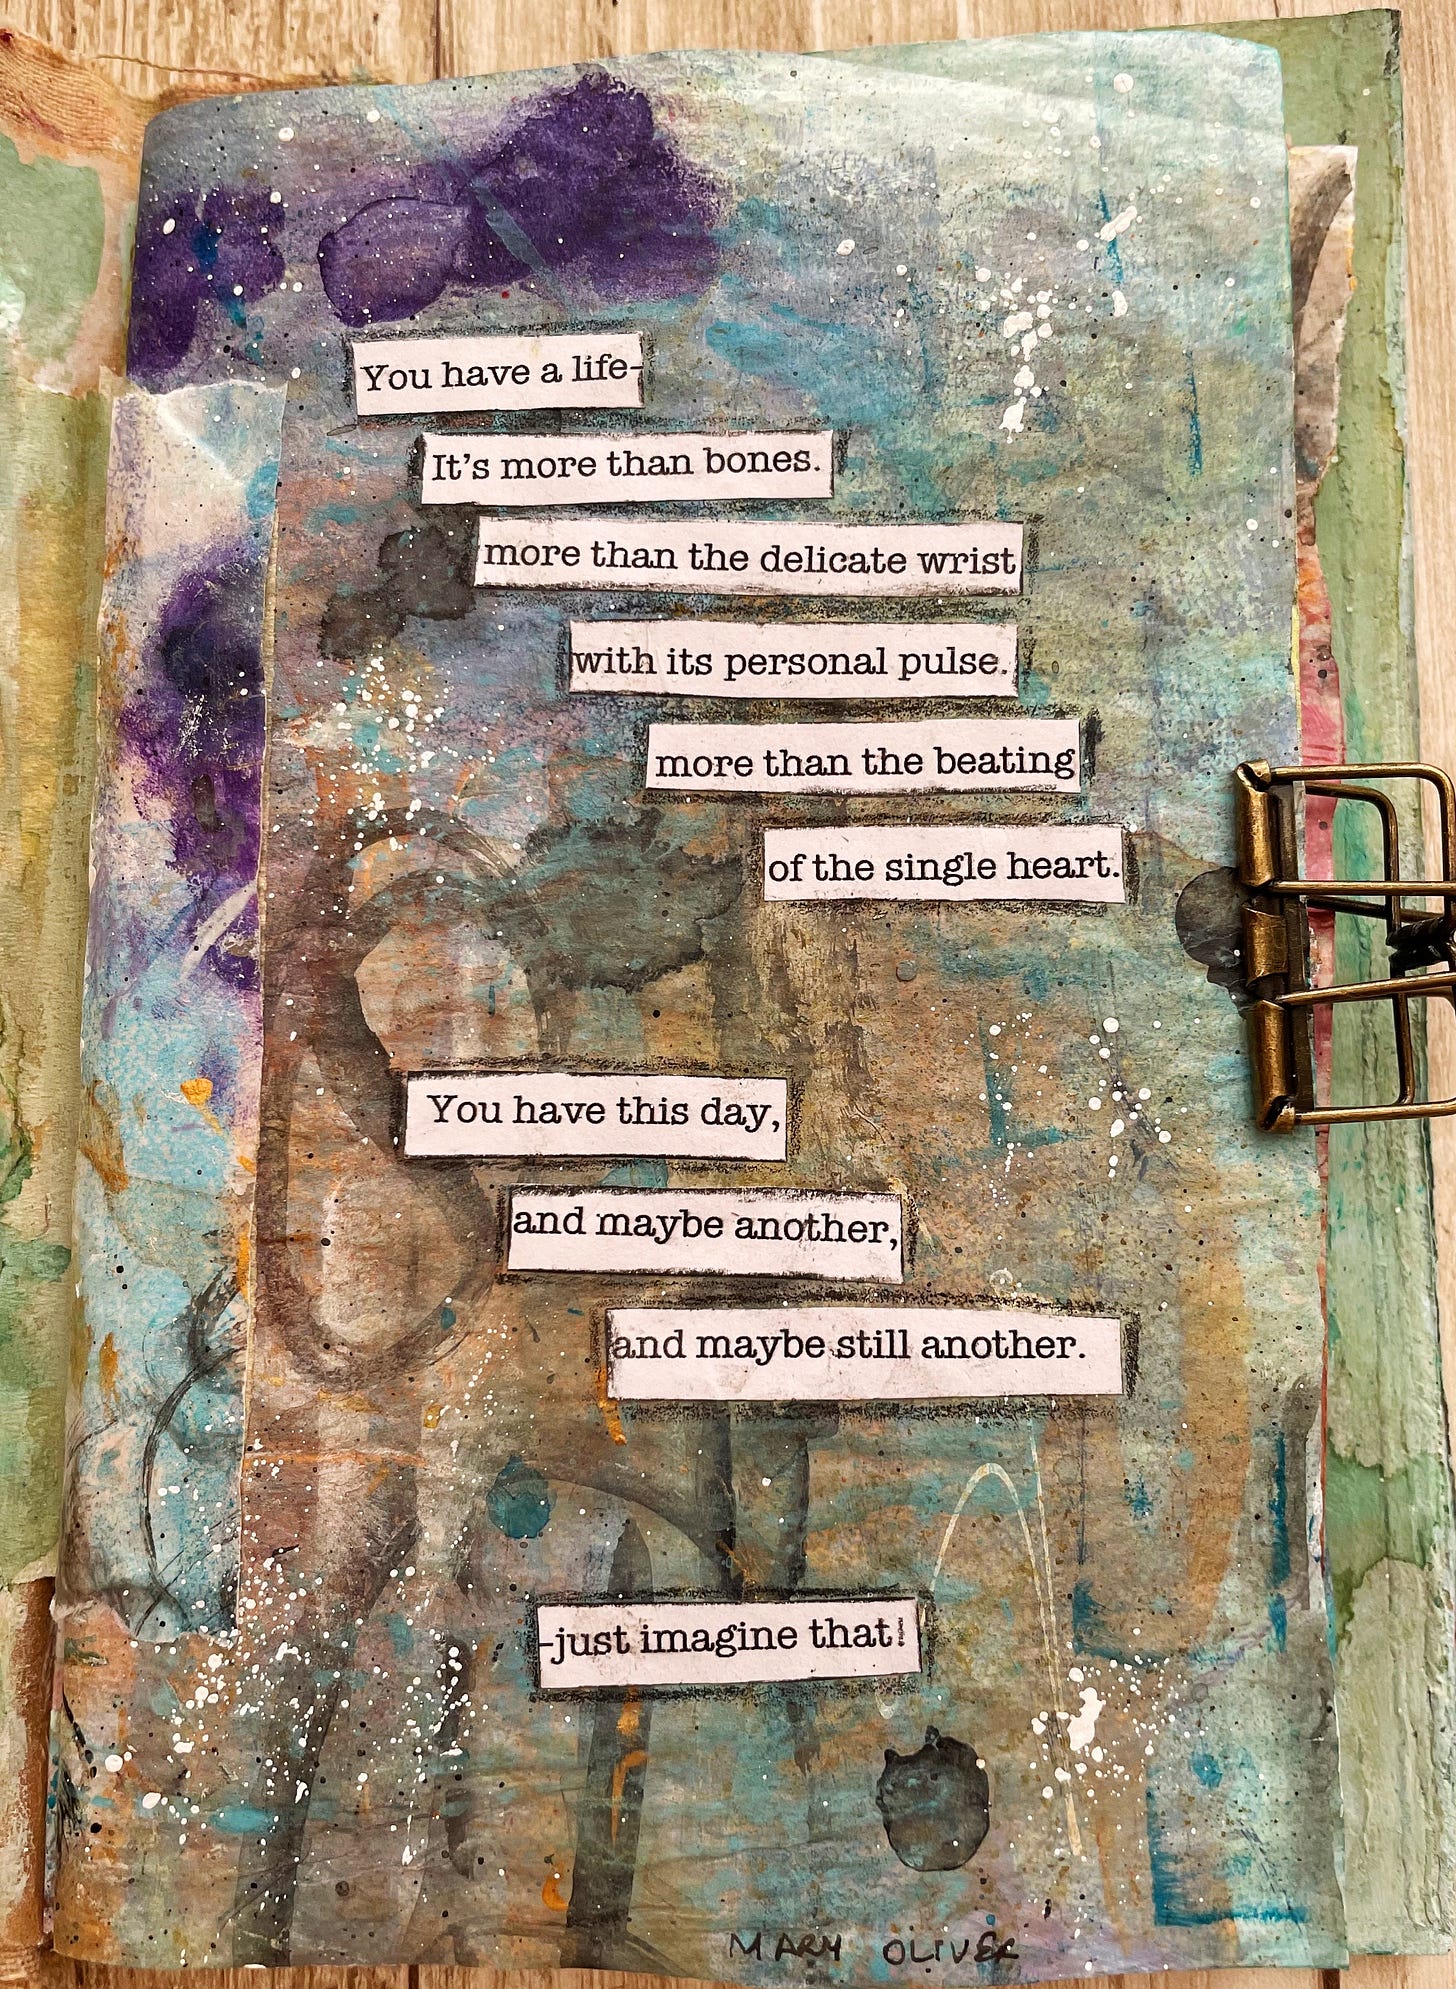 You have a life-
It's more than bones.
more than the delicate wrist
with its personal pulse.
more than the beating
of the single heart.
You have this day,
and maybe another,
and maybe still another.
-just imagine that!
MARY OLIVER